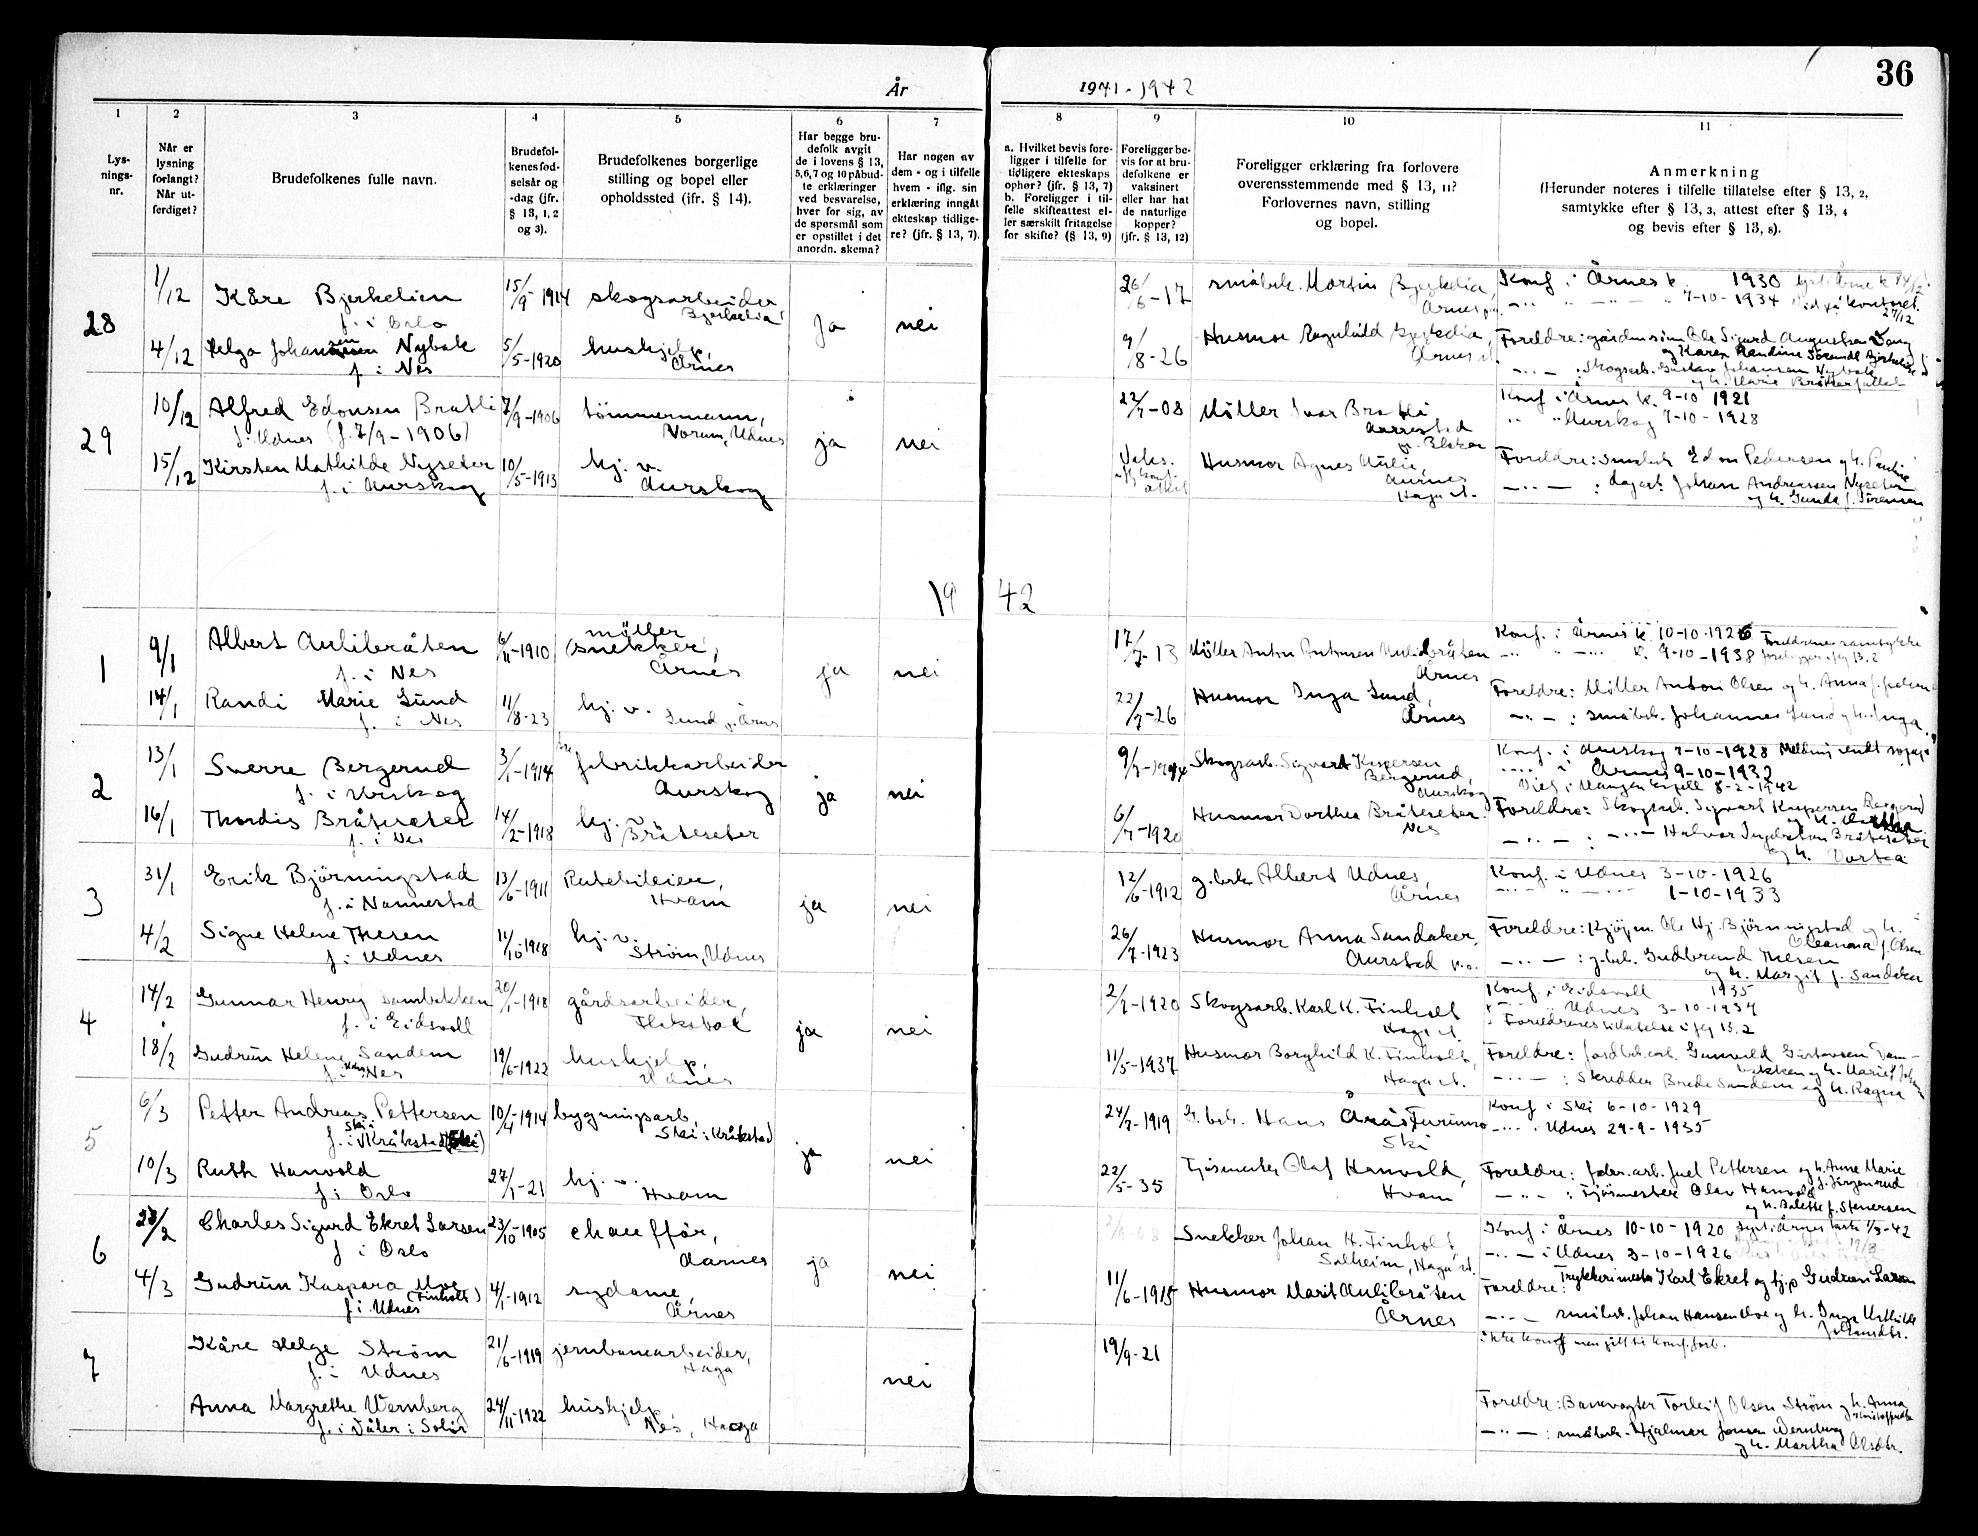 36
År 1941-1942
1
Lys-
nings-
nr.
2
Når er
lysning
forlangt?
Når ut-
ferdiget?
3
Brudefolkenes fulle navn.
4
Brudefol-
kenes fød-
selsår og
-dag (jfr.
§ 13, 1, 2
og 3).
5
Brudefolkenes borgerlige
stilling og bopel eller
opholdssted (jfr. § 14).
6
Har begge bru-
defolk avgit
de i lovens § 13,
5,6,7 og 10 påbud-
te erklæringer
ved besvarelse,
hver for sig, av
de spørsmål som
er opstillet i det
anordn. skema?
7
Har nogen av
dem - og i tilfelle
hvem - iflg. sin
erklæring inngåt
ekteskap tidlige-
re? (jfr. § 13, 7).
8
a. Hvilket bevis fore-
ligger i tilfelle for
tidligere ekteskaps
ophør? (jfr. § 13, 7)
b. Foreligger i til-
felle skifteattest el-
ler særskilt fritagelse
for skifte? (§ 13, 9)
9
Foreligger be-
vis for at bru-
defolkene er
vaksinert
eller har hat
de naturlige
kopper?
(jfr. § 13, 12)
10
Foreligger erklæring fra forlovere
overensstemmende med § 13, 11?
Forlovernes navn, stilling
og bopel.
11
Anmerkning
(Herunder noteres i tilfelle tillatelse efter § 13, 2,
samtykke efter § 13, 3, attest efter § 13, 4
og bevis efter § 13, 8).
28
1/12 Kåre Bjerkelien 15/9-1914 skogsarbeider
f. i Oslo Bjerkelia
ja nei
4/12 Helga Johansen Nybak 5/5-1920 hushjelp,
f. i Nes Årnes
26/6-17 småbr. Martin Bjerkelia,
Årnes
9/8-26 Husmor Ragnhild Bjerkelia,
Årnes st.
Konf. i Årnes k. 1930
7-10-1934
Foreldre: gårdmann Ole Sigurd Augustsen
og Karen Randine
Skogsarb. Gustav Johansen Nybak
og h. Marie
29
10/12 Alfred Edonsen Bratli 7/9-1906 tømmermann,
f. i Udnes (f. 7/9-1906) Vorum, Udnes
ja nei
15/12 Kirsten Mathilde Nyseter 10/5-1913 hj. v.
f. i Aurskog Aurskog
22/7-08 Møller Ivar Bratli
Aarnestad
Husmor Agnes Aulie,
Aurnes
Haga st.
Konf. i Årnes k. 9-10 1921
" " Aurskog 7-10-1928
Foreldre: småbr. Edon Pedersen og h. Pauline
—"— : dagarb. Johan Andreassen Nyseter
og h. Gunda f. Sørensen
1942
1
9/1 Albert Aulibråten 6/11-1910 møller
(snekker),
f. i Nes Årnes
ja nei
14/1 Randi Marie Sund 11/8-23 hj. v.
f. i Nes Sund p. Årnes
17/7-13 Møller Anton Antonsen Aulibråten
Årnes
22/7-26 Husmor Inga Sund,
Årnes
Konf. i Årnes k. 10-10-1926 Foreldrenes samtykke
k. 9-10-1938 foreligger
Foreldre: Møller Anton Olsen og h. Anna
—"— : småbr. Johannes Sund og h. Inga
2
13/1 Sverre Bergerud 3/1-1914 fabrikkarbeider
f. i Urskog Aurskog
ja nei
16/1 Thordis Bråteseter 14/2-1918 hj. v.
f. i Nes Bråteseter
Skogsarb. Sigvart Kaspersen
Bergerud,
Aurskog
6/7-1920 Husmor Dorthea Bråteseter
Nes
Konf. i Aurskog 7-10-1928 Melding sendt
i Årnes 9-10-1932
8-2-1942
Foreldre: Skogsarb. Sigvart Kaspersen Bergerud
—"— : Halvor Bråteseter
og h. Dortea
3
31/1 Erik Bjørningstad 13/6-1911 Rutebileier,
f. i Nannestad Hvam
ja nei
4/2 Signe Helene Thesen 11/10-1918 hj. v.
f. i Udnes Strøm, Udnes
12/6-1912 g.brk. Albert Udnes,
Årnes
26/7-1923 Husmor Anna Sandaker,
Aurstad p.o.
Konf. i Udnes 3-10-1926
1-10-1933
Foreldre: Kjøpm. Ole Hj. Bjørningstad og h.
Oleanna f. Olsen
—"— : g.brk. Gudbrand Thesen
og h. Margit f. Sandaker
4
14/2 Gunnar Henry Dambekken 20/1-1918 gårdsarbeider,
f. i Eidsvoll
ja nei
18/2 Gudrun Helene Sandem 19/6-1922 hushjelp,
f. i Nes Udnes
2/7-1920 Skogsarb. Karl K. Finholt
Haga st.
11/5-1937 Husmor Borghild K. Finholt,
Haga st.
Konf. i Eidsvoll 1935
Udnes 3-10-1937
Foreldrenes tillatelse
Foreldre: jordbr.arb. Gunvald Gustavsen Dam-
bekken og h. Marie
—"— : Skredder Brede Sandem og h. Ragna
5
6/3 Petter Andreas Pettersen 10/4-1914 bygningsarb,
Ski i
f. i Kråkstad (Ski) Ski i Kråkstad
ja nei
10/3 Ruth Hanvold 27/1-21 hj. v.
f. i Oslo Hvam
24/7-1919 G.brk. Hans Årås Furumo
Ski
22/5-35 Fjøsmester Olaf Hanvold,
Hvam
Konf. i Ski 6-10-1929
" Udnes 29-9-1935
Foreldre: fabr.arb. Juel Pettersen og h. Anne Marie
f. Jørgensrud
—"— : Fjøsmester Olav Hanvold
og h. Valette f. Stenersen
6
23/2 Charles Sigurd Ekret Larsen 23/10-1905 chauffør,
f i Oslo Aarnes
ja nei
4/3 Gudrun Kaspara Moe 4/1-1912 sydame,
(Finholt)
f. i Udnes Årnes
Snekker Johan H. Finholt
Solheim, Haga st.
11/6-1915 Husmor Marit Aulibråten
Årnes
Konf. i Årnes 10-10-1920
—"— i Udnes 3-10-1926
Foreldre: Trykkerimester Karl Ekret og Gudrun Larsen
—"— småbr. Johan Hansen Moe og h. Inga Mathilde
Johansdtr.
7
Kåre Helge Strøm 21/6-1919 jernbanearbeider,
f. i Udnes Haga
nei
Anna Margrethe Wernberg 24/11-1922 hushjelp,
f. i Våler i Solør Nes, Haga
19/9-21
ikke konf.
Foreldre: Banevogter Torleif Olsen Strøm og h. Anna
—"— : småbrk. Hjalmar Jonsen Wernberg
og h. Martha Olsdtr.